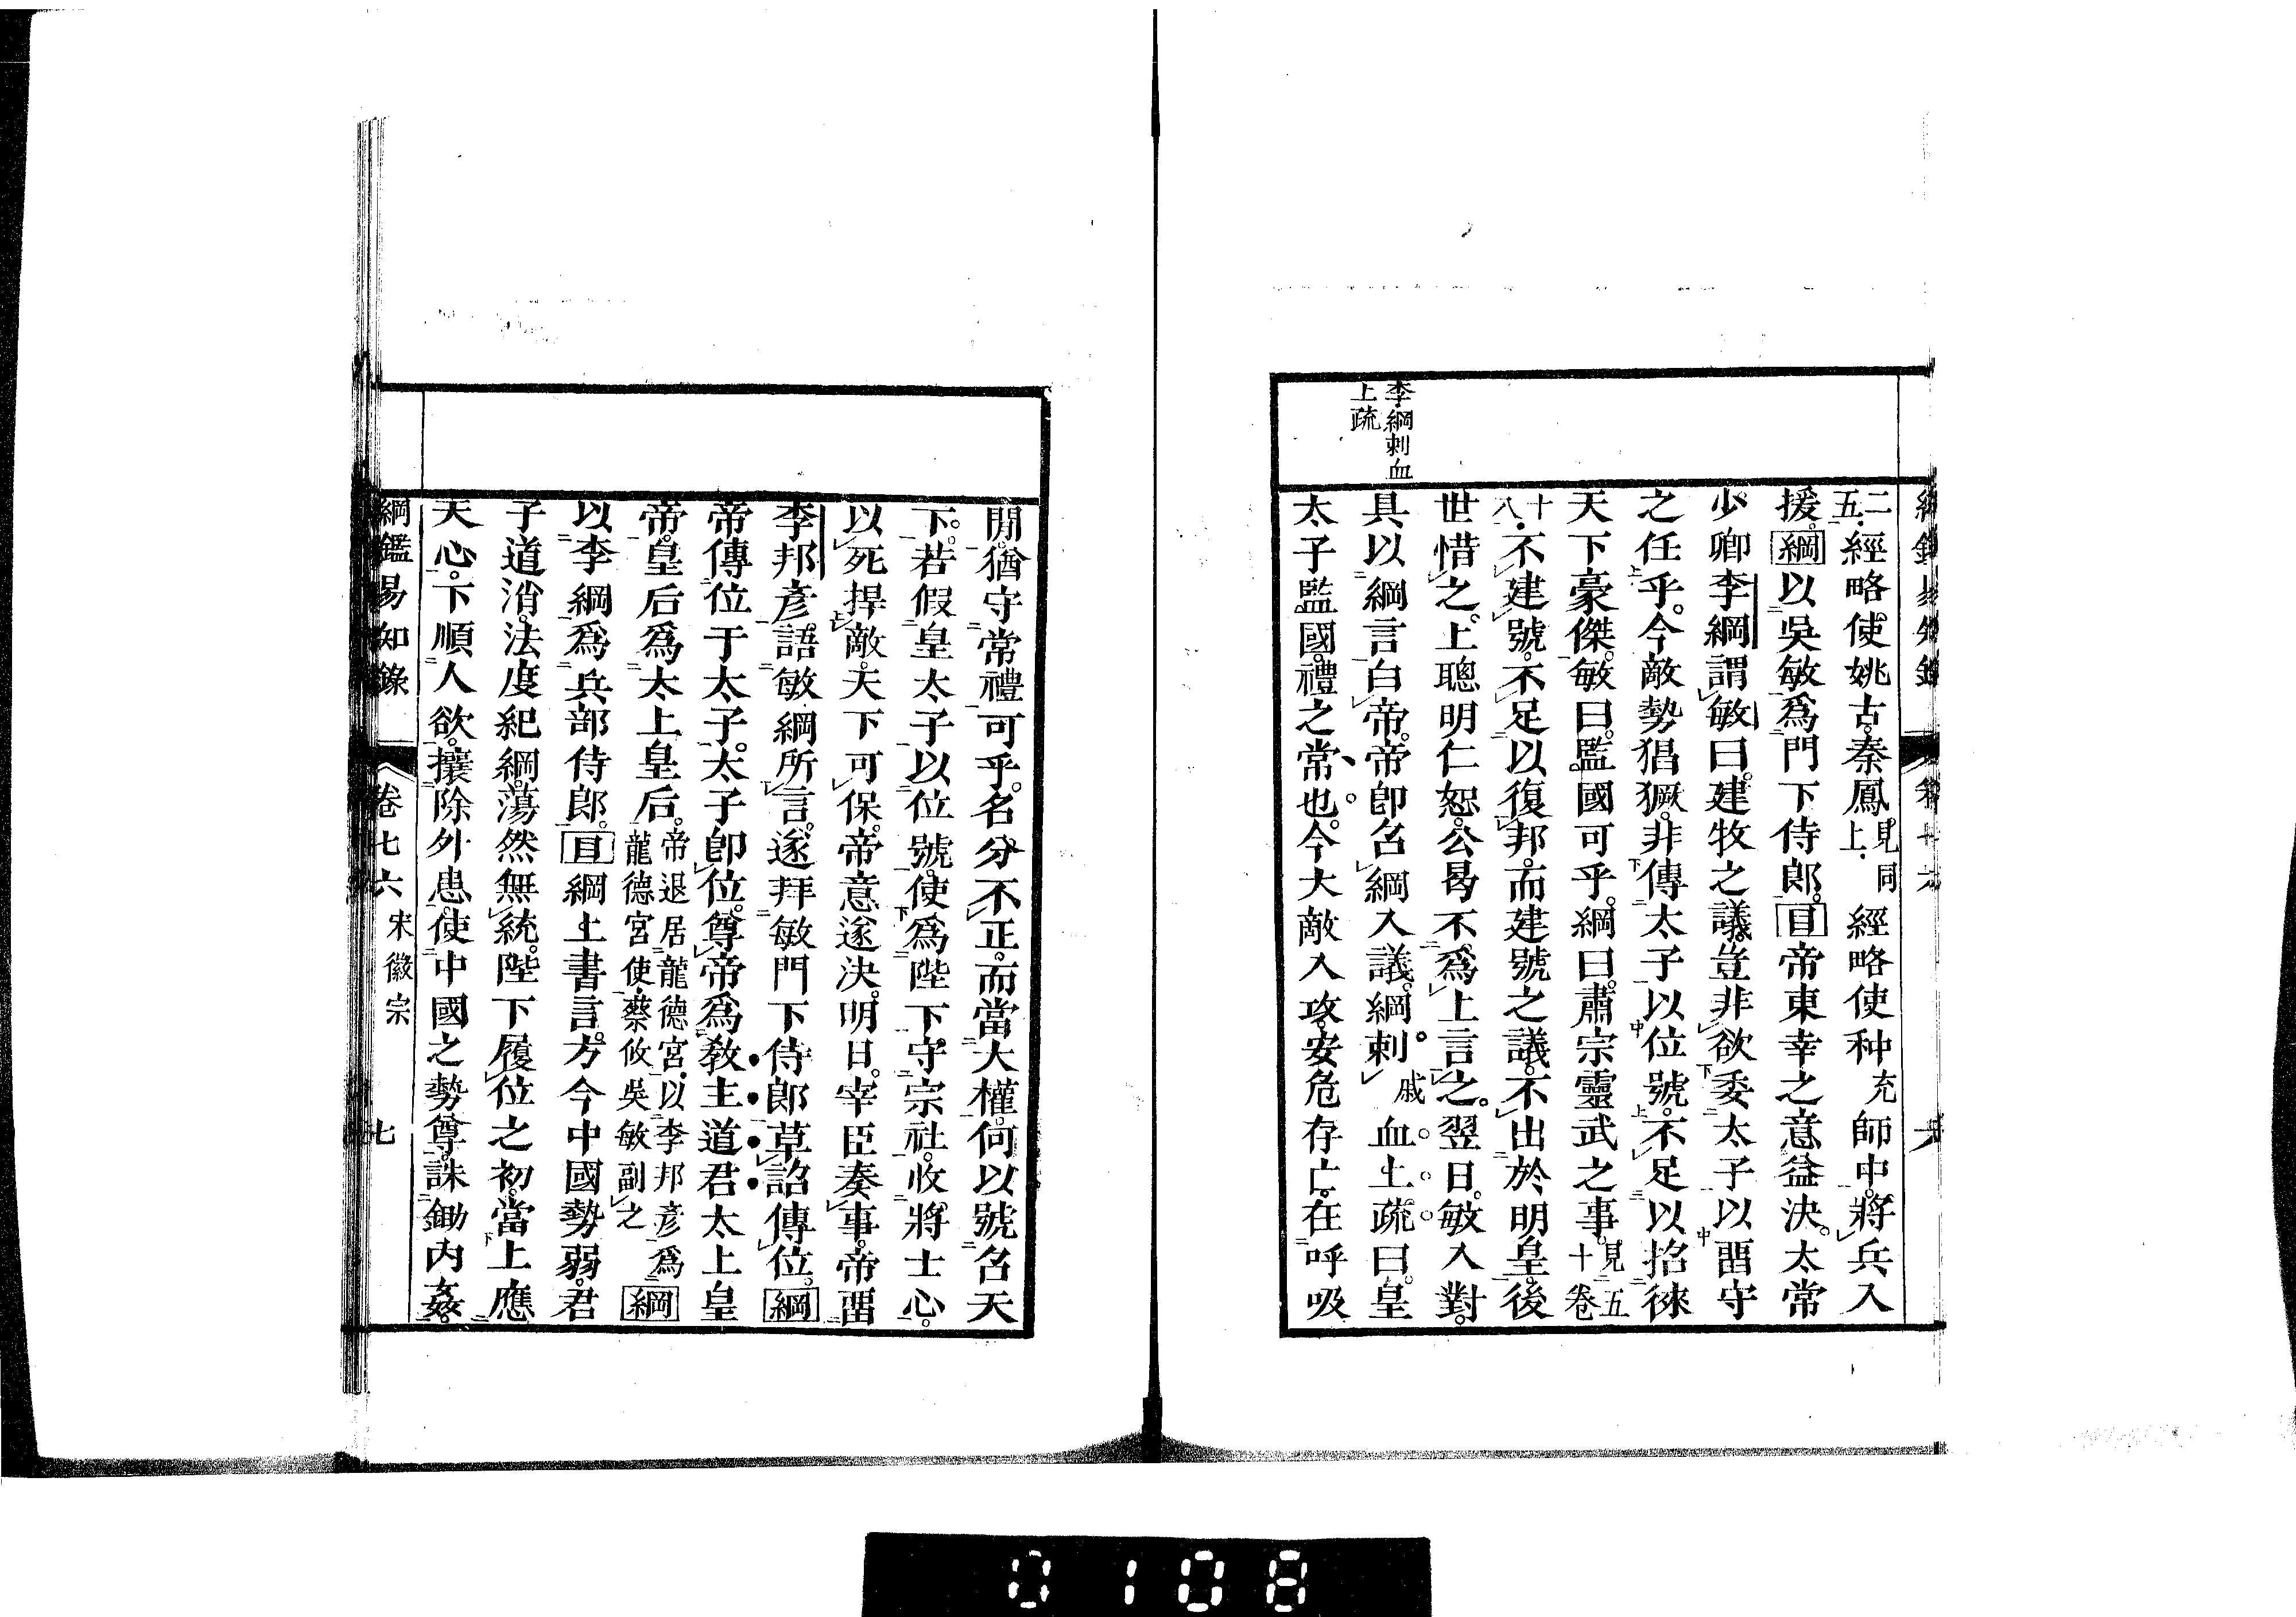 李綱刺血
上疏
二五經略使姚古秦鳳見同上經略使种充師中將兵入
援綱以吳敏爲門下侍郎目帝東幸之意益決太常
少卿李綱謂敏曰建牧之議豈非欲委太子以畱守
之任乎今敵勢猖獗非傳太子以位號不足以招徠
天下豪傑敏曰監國可乎綱曰肅宗靈武之事見五十二卷
十八不建號不足以復邦而建號之議不出於明皇後
世惜之上聰明仁恕公曷不爲上言之翌日敏入對
具以綱言白帝帝卽召綱入議綱刺戚血上疏曰皇
太子監國禮之常也今大敵入攻安危存亡在呼吸
閒猶守常禮可乎名分不正而當大權何以號召天
下若假皇太子以位號使爲陛下守宗社收將士心
以死捍敵天下可保帝意遂決明日宰臣奏事帝畱
李邦彥語敏綱所言遂拜敏門下侍郎草詔傳位綱
帝傳位于太子太子卽位尊帝爲教主道君太上皇
帝皇后爲太上皇后帝退居龍德宮以李邦彥爲龍德宮使蔡攸吳敏副之綱
以李綱爲兵部侍郎目綱上書言方今中國勢弱君
子道消法度紀綱蕩然無統陛下履位之初當上應
天心下順人欲攘除外患使中國之勢尊誅鋤內姦
綱鑑易知錄 卷七六 宋徽宗 七
0108